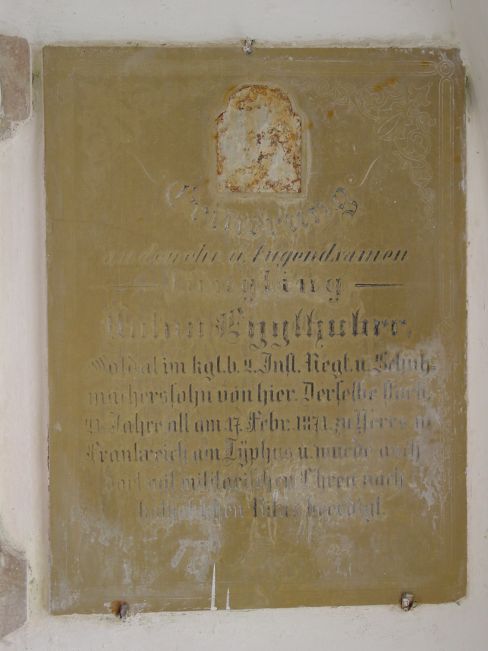 Erinnerung
an den ehr u. tugendsamen
Jüngling
Egglhuber.
Soldat im kgl. b. 2. Inft. Regt. u. Schuh-
machersohn von hier. Derselbe starb,
Jahre alt am 17. Febr. 1871. zu in
Frankreich am Typhus u. wurde auch
dort mit militärischen Ehren nach
katholischen Ritus beerdigt.